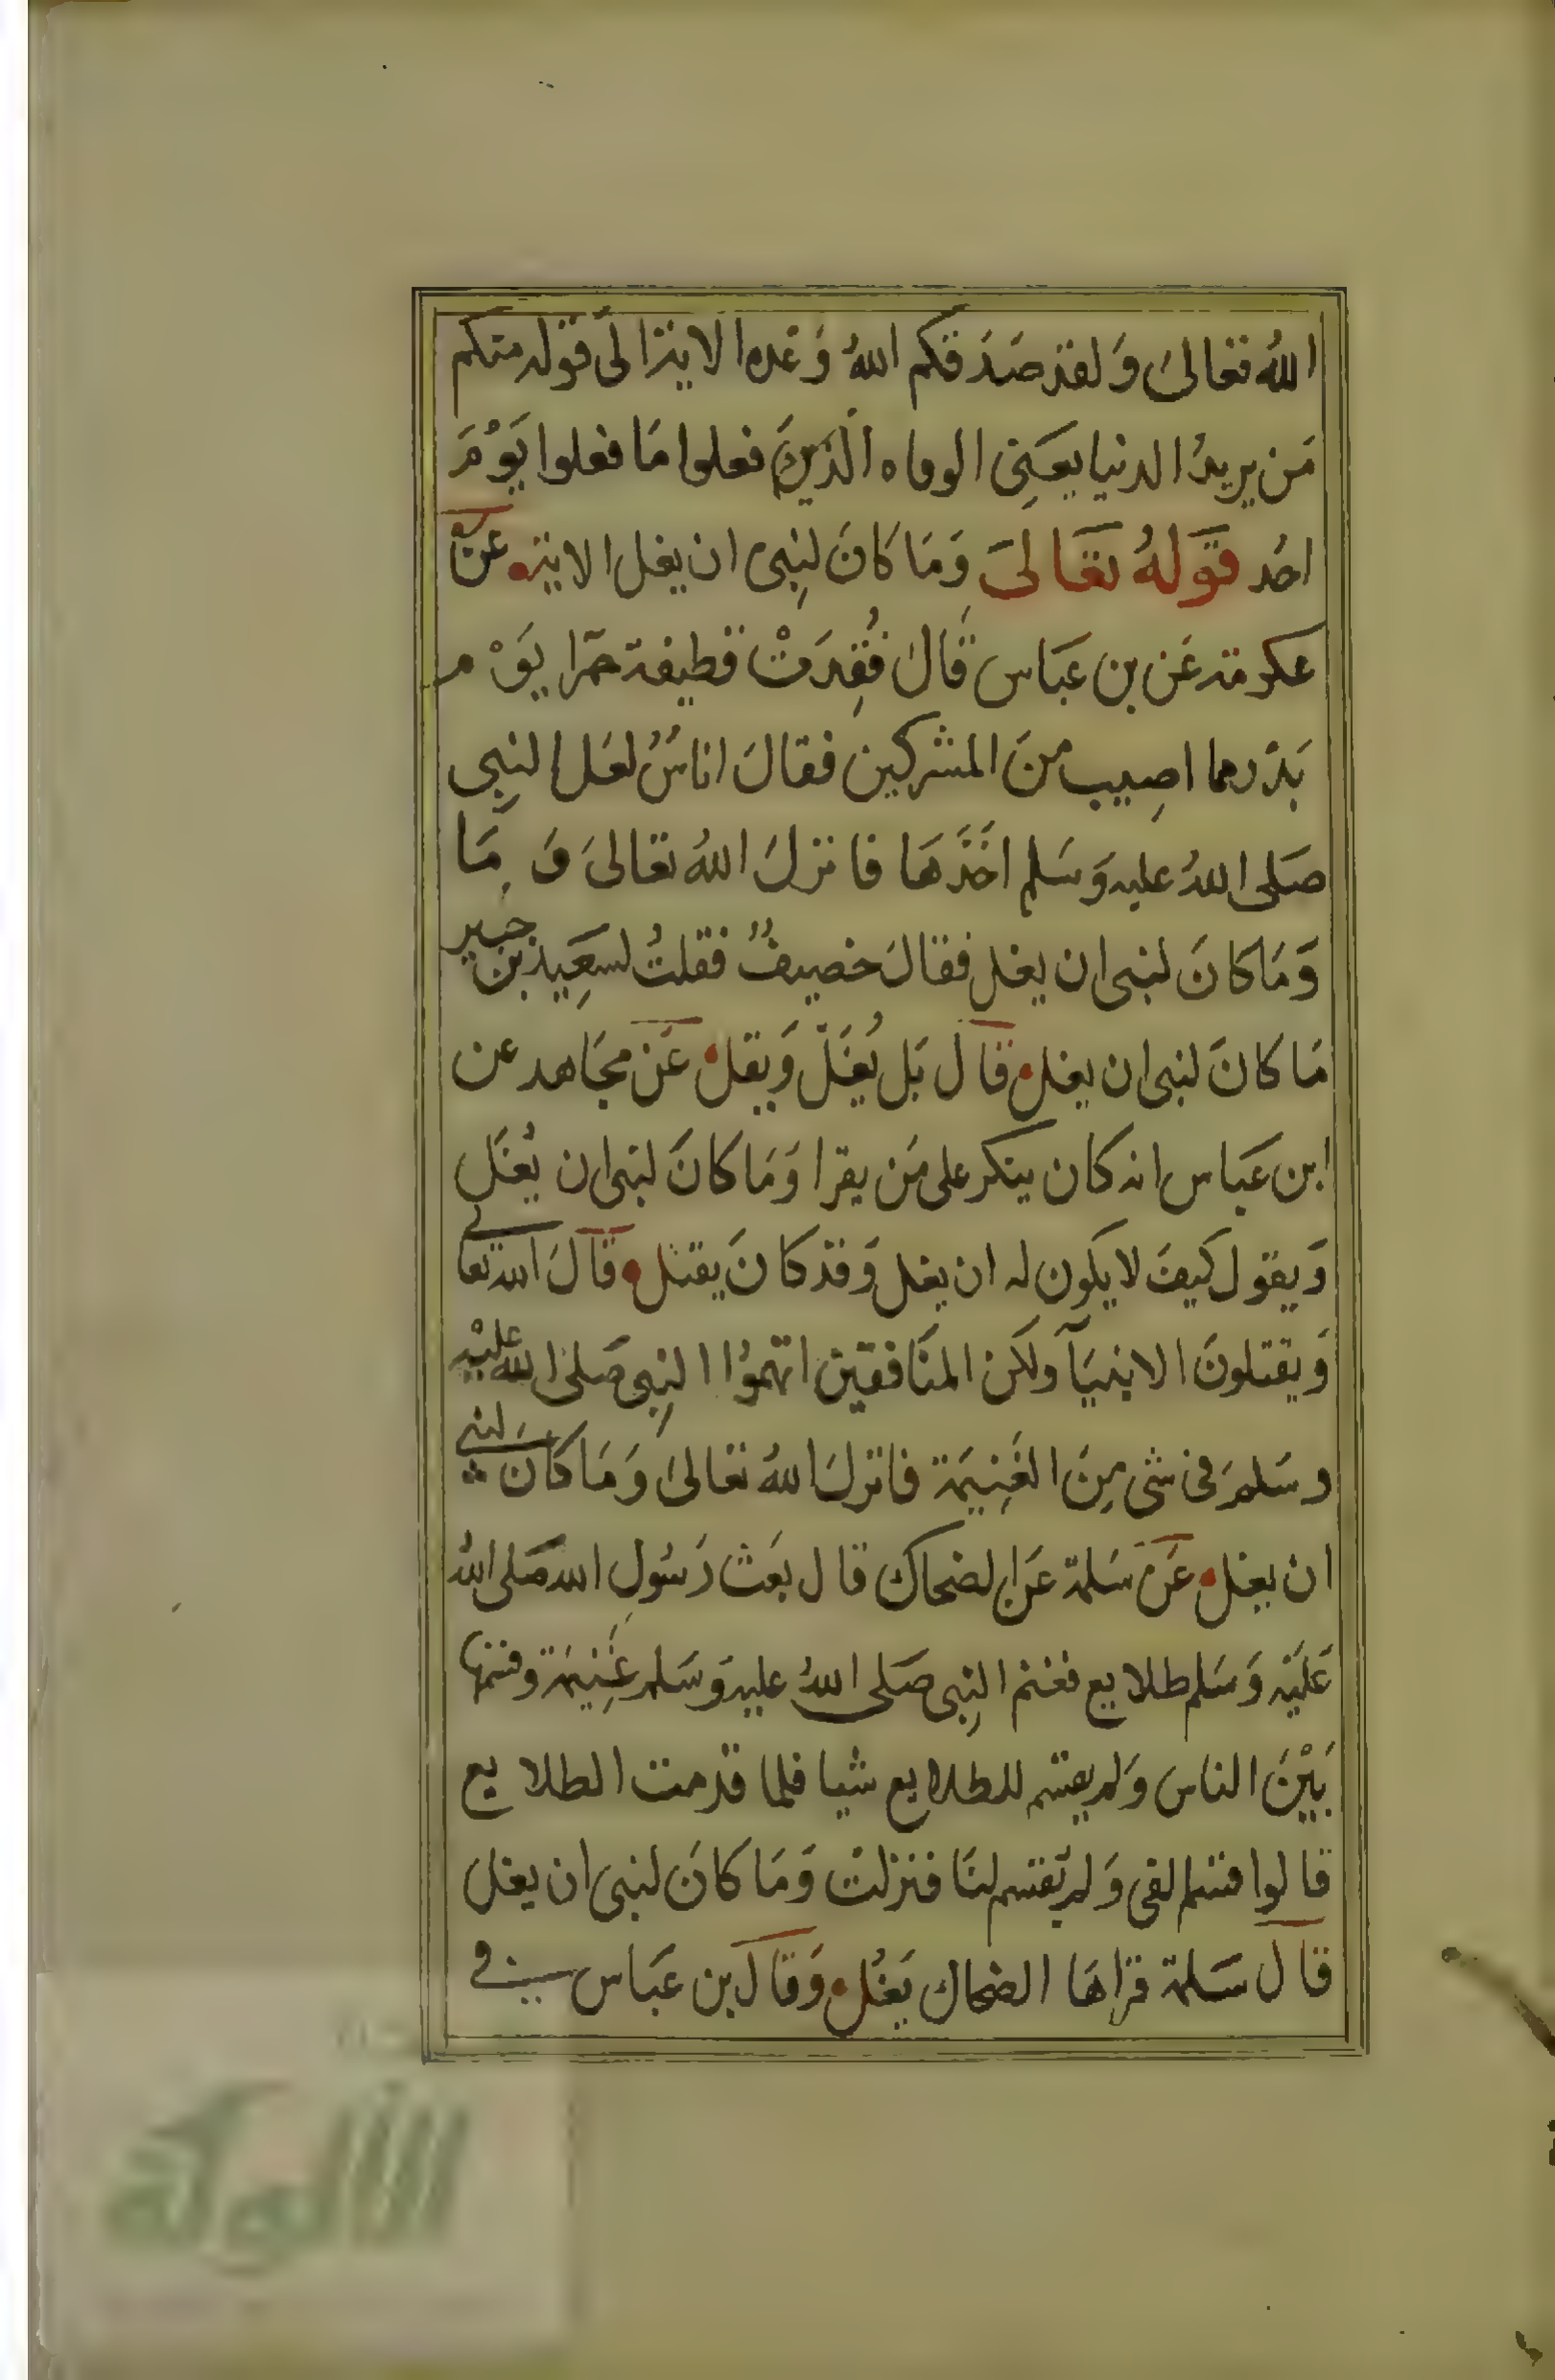 الله فتعالى وَلقد صَدَقكم اللهُ وَعده الاية الى قوله منكم
مَن يريدُ الدنيا يعَنِى الرماه الّذينَ فعلوا مَا فعلوا يَوْمَ
احُد قوَلهُ تعَالىَ وَمَا كانَ لنِبى ان يغل الاية عَن
عكرمة عَن بن عَباس قَال فُقِدَتْ قطيفة حمَرا يَوْم
بَدْر مما اصِيب منَ المشركين فقالَ اناسٌ لعَل النبِى
صَلى اللهُ عليه وَسَلم اخَذَهَا فانزلَ اللهُ تعَالىَ وَ مَا
وَمَا كانَ لنبى ان يغل فقالَ خصيفٌ فقلتُ لسَعِيد بن جبير
مَا كانَ لنبى ان يغل قال بَل يُغَلّ وَيقتل عَن مجَاهد عن
ابن عَباس انه كان ينكر على مَن يقرا وَمَا كانَ لنبى ان يُغَل
وَيقول كيفَ لا يكون له ان يغل وَقد كانَ يقتل قالَ الله تعالى
وَيقتلونَ الانبيَآ ولكن المنَافقين اتهموُا النِبى صَلى الله عليْه
وسَلم فى شى مِنَ الغَنِيمَة فانزلَ اللهُ تعَالىَ وَمَا كانَ لنبى
ان يغل عَن سَلمة عَن الضحاك قال بَعث رَسُولِ الله صَلى اللهُ
عَليَه وَسَلم طلايع فغنم النِبى صَلى اللهُ عليه وَسَلم غَنِيمَة وقسمها
بَيْنَ الناس وَلم يقسم للطلايع شيا فلما قدمت الطلايع
قالوا قسم الفى وَلم يَقسم لنَا فنزلت وَمَا كانَ لنبى ان يغل
قال سَلمة قراهَا الضحاك يَغُل وَقال بن عَباس فى
الألوكة